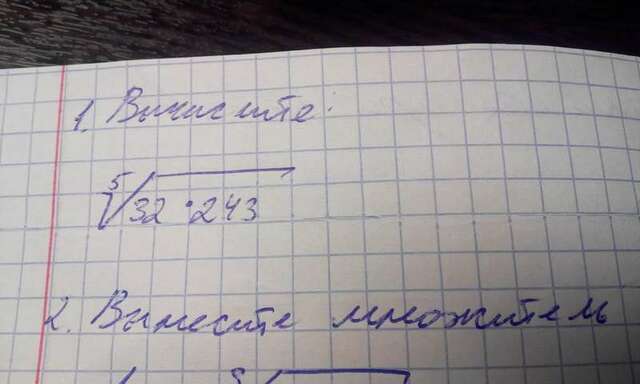 1. Вычислите:
⁵√32·243
2. Вынесите множитель